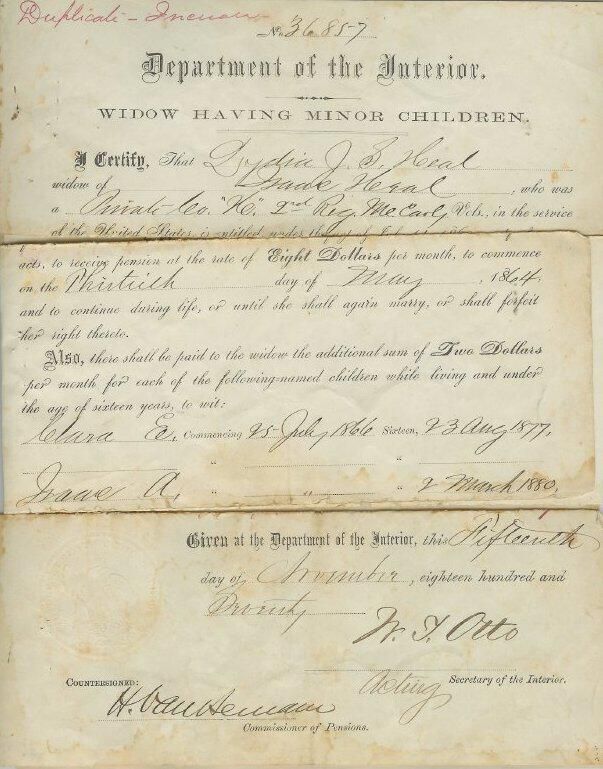 Duplicate - Increase
No. 36.857
Department of the Interior.
WIDOW HAVING MINOR CHILDREN.
I Certify, That Lydia J. S. Heal
widow of Isaac Heal, who was
a Private Co. "K." 2nd Reg. Me Cavly Vols., in the service
of the United States, is entitled under the
acts, to receive pension at the rate of Eight Dollars per month, to commence
on the Thirtieth day of May, 1864,
and to continue during life, or until she shall again marry, or shall forfeit
her right thereto.
Also, there shall be paid to the widow the additional sum of Two Dollars
per month for each of the following-named children while living and under
the age of sixteen years, to wit:
Clara E. Commencing 25 July 1866 Sixteen, 23 Aug 1877.
Isaac A. " " " 2 March 1880.
Given at the Department of the Interior, this Fifteenth
day of November, eighteen hundred and
Seventy
W. T. Otto
Acting Secretary of the Interior.
COUNTERSIGNED:
H. Van Aernam
Commissioner of Pensions.